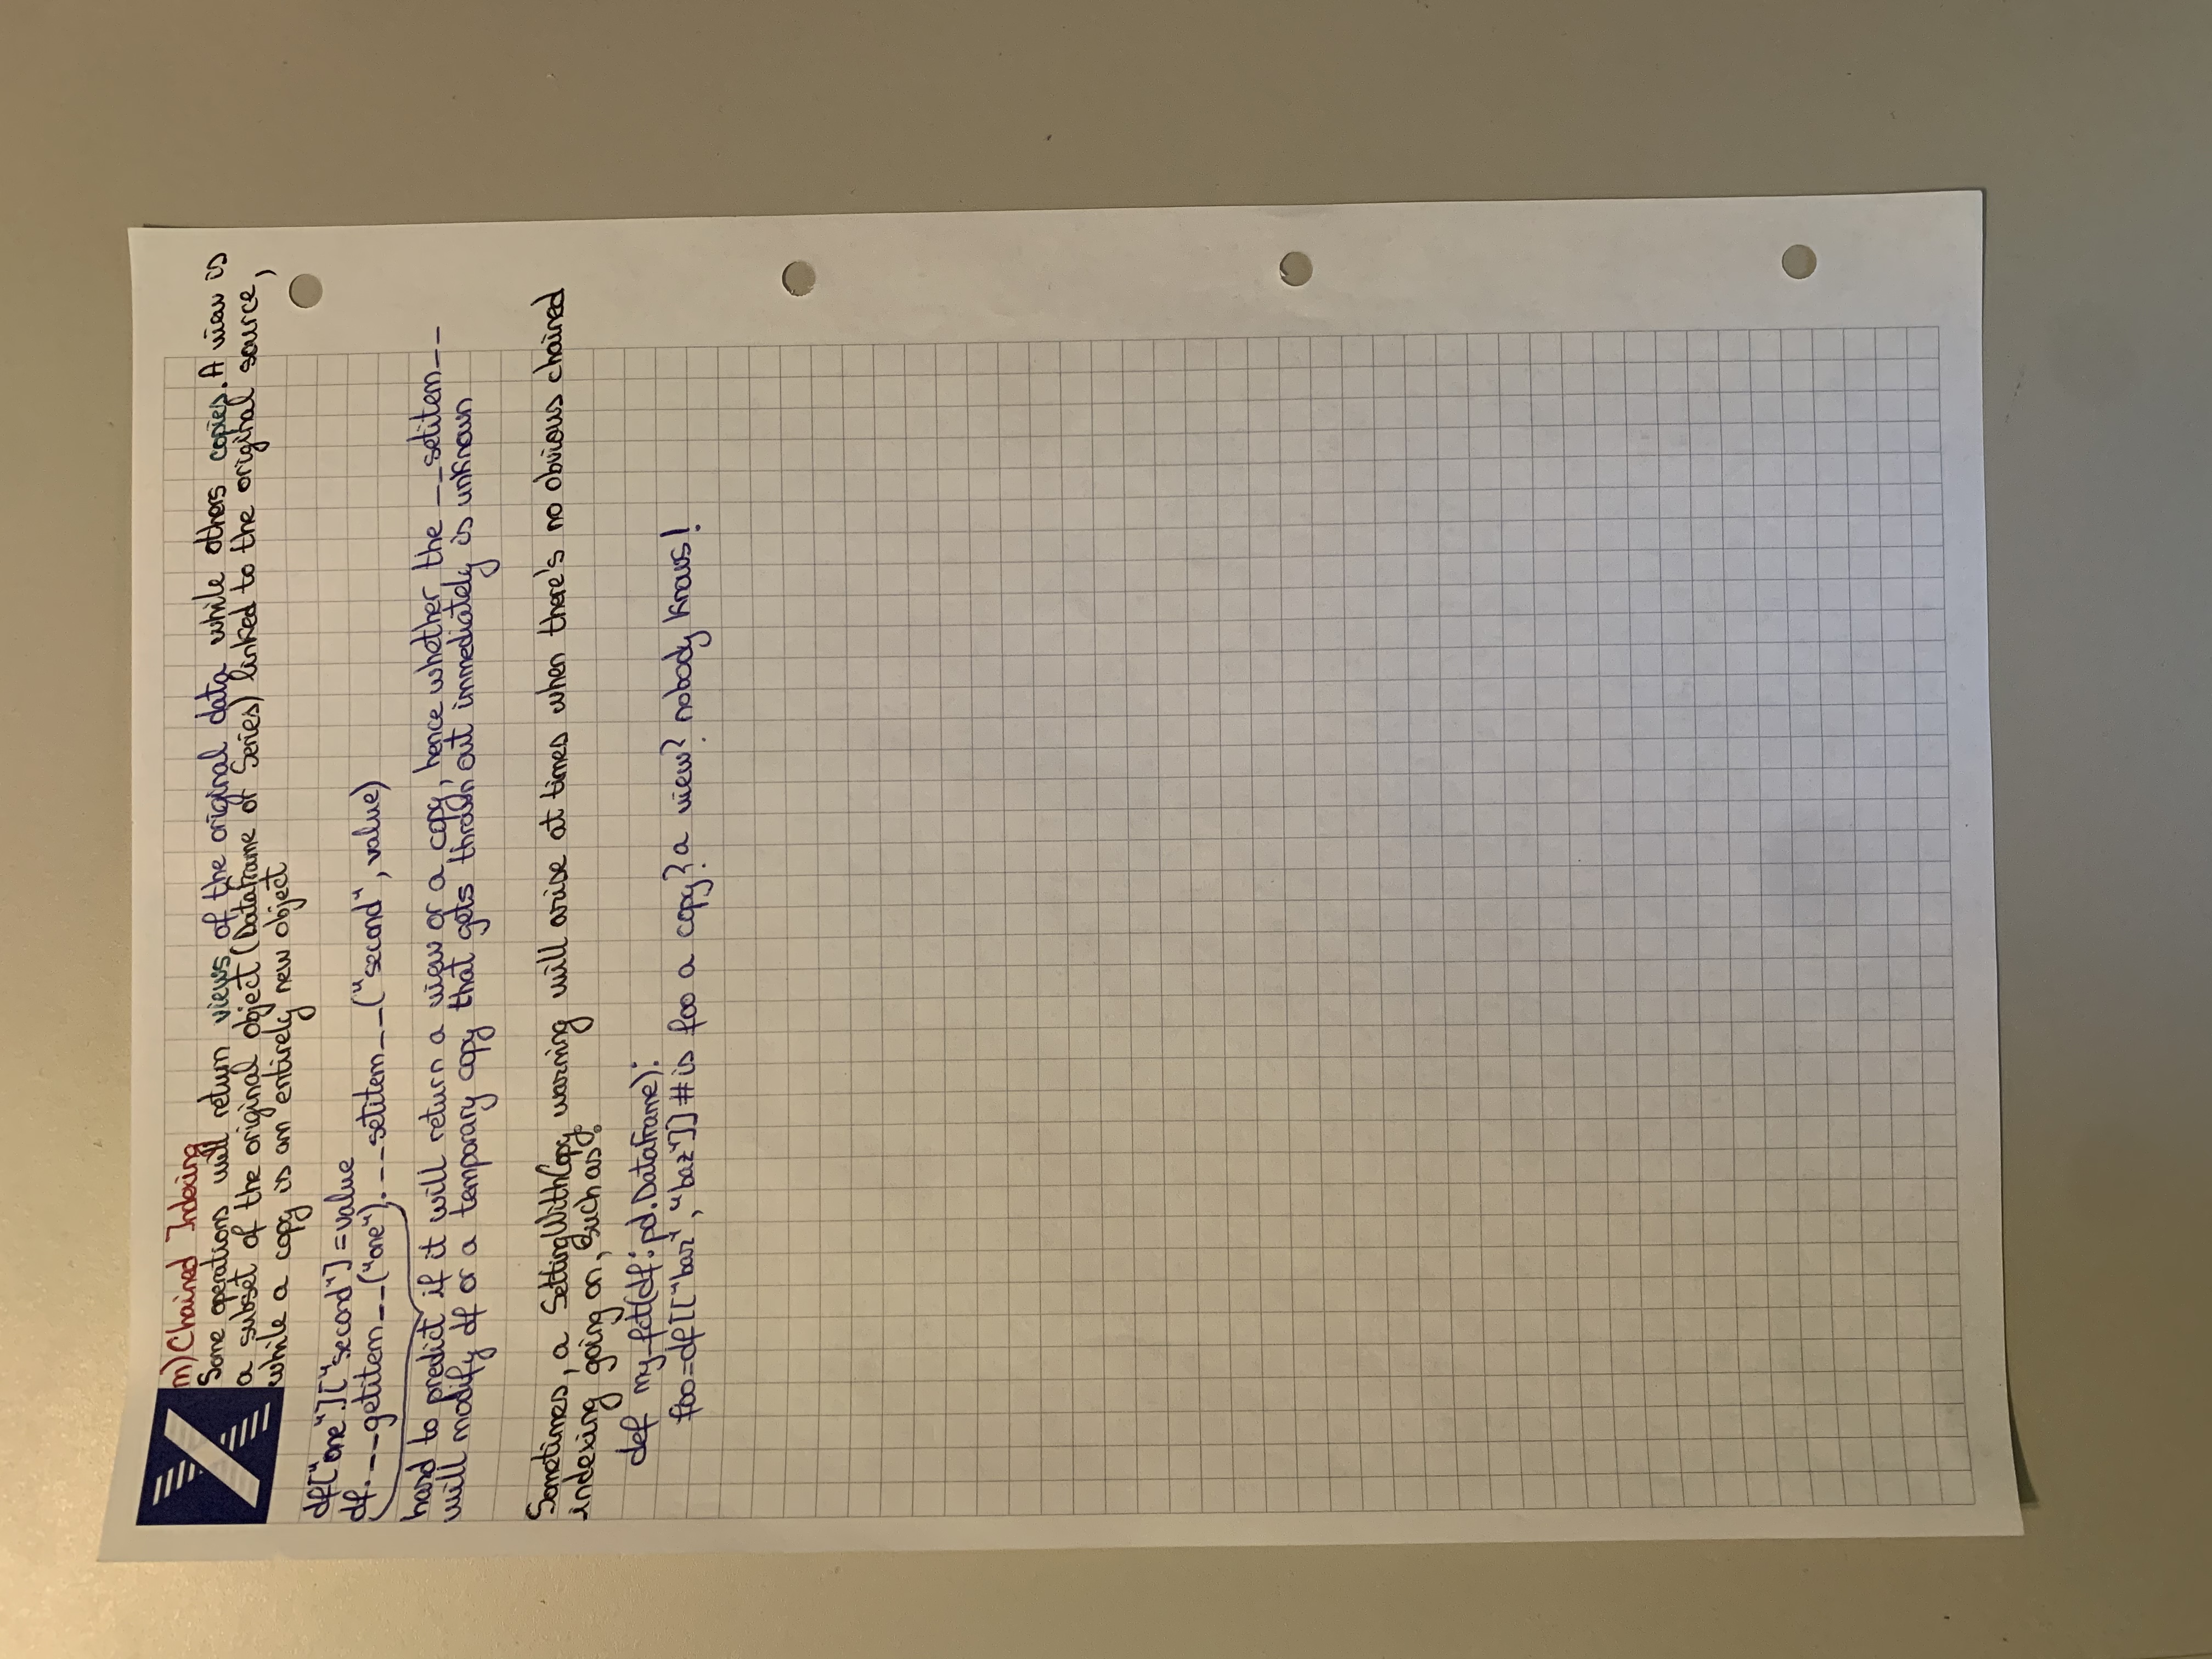 m) Chained Indexing
Some operations will return views of the original data while others copies. A view is
a subset of the original object (DataFrame or Series) linked to the original source,
while a copy is an entirely new object
df["one"]["second"]=value
df.__getitem__("one").__setitem__("second", value)
hard to predict if it will return a view or a copy, hence whether the __setitem__
will modify df or a temporary copy that gets thrown out immediately is unknown
Sometimes, a SettingWithCopy warning will arise at times when there's no obvious chained
indexing going on, such as:
def my_fct(df: pd.DataFrame):
foo=df[["bar", "baz"]] # is foo a copy? a view? nobody knows!